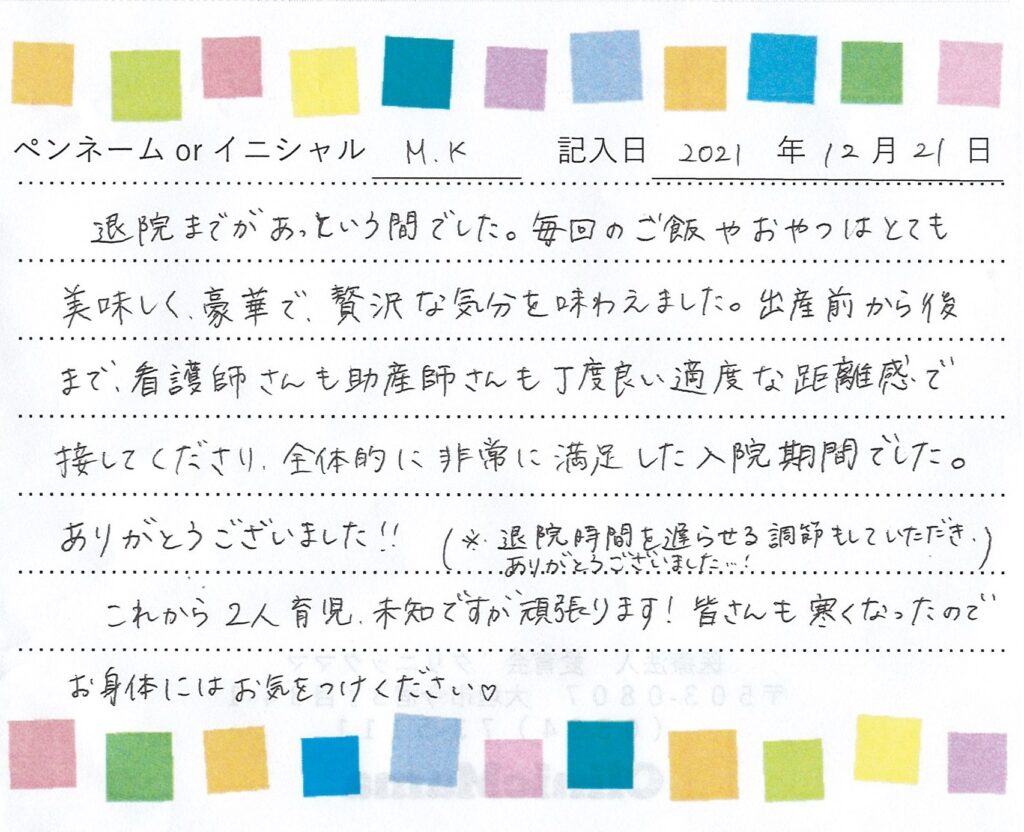 ペンネーム or イニシャル M.K 記入日 2021 年 12 月 21 日
退院まであっという間でした。毎回のご飯やおやつはとても
美味しく、豪華で、贅沢な気分を味わえました。出産前から後
まで、看護師さんも助産師さんも丁度良い適度な距離感で
接してくださり、全体的に非常に満足した入院期間でした。
ありがとうございました!! (※ 退院時間を遅らせる調節もしていただき、
ありがとうございました…!)
これから2人育児、未知ですが頑張ります! 皆さんも寒くなったので
お身体にはお気をつけください♡
医療法人 愛育会 クリニックママ
〒503-0807